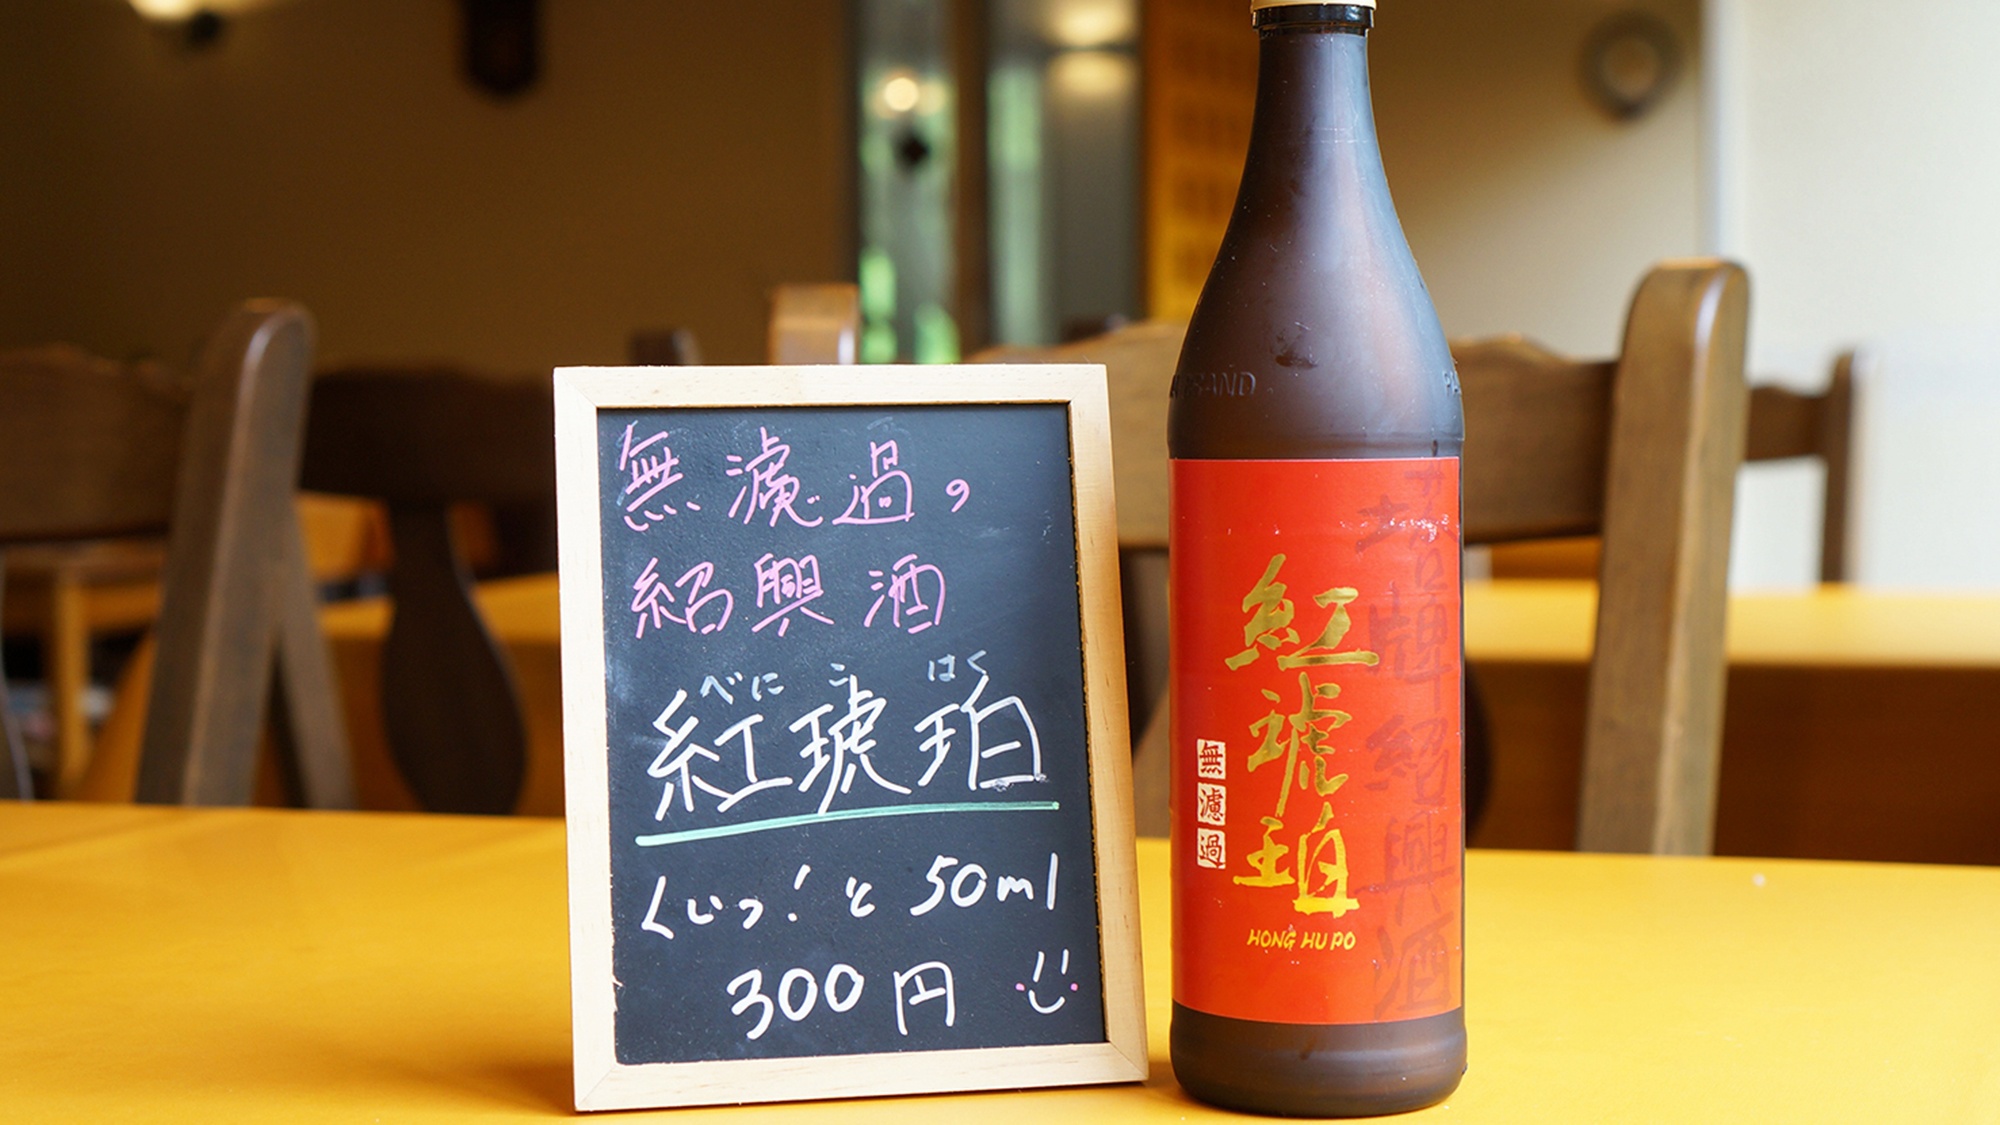 無濾過の
紹興酒
べに こ はく
紅琥珀
くいっ!と50ml
300円
紅琥珀
無濾過
HONG HU PO
塔牌紹興酒
BRAND